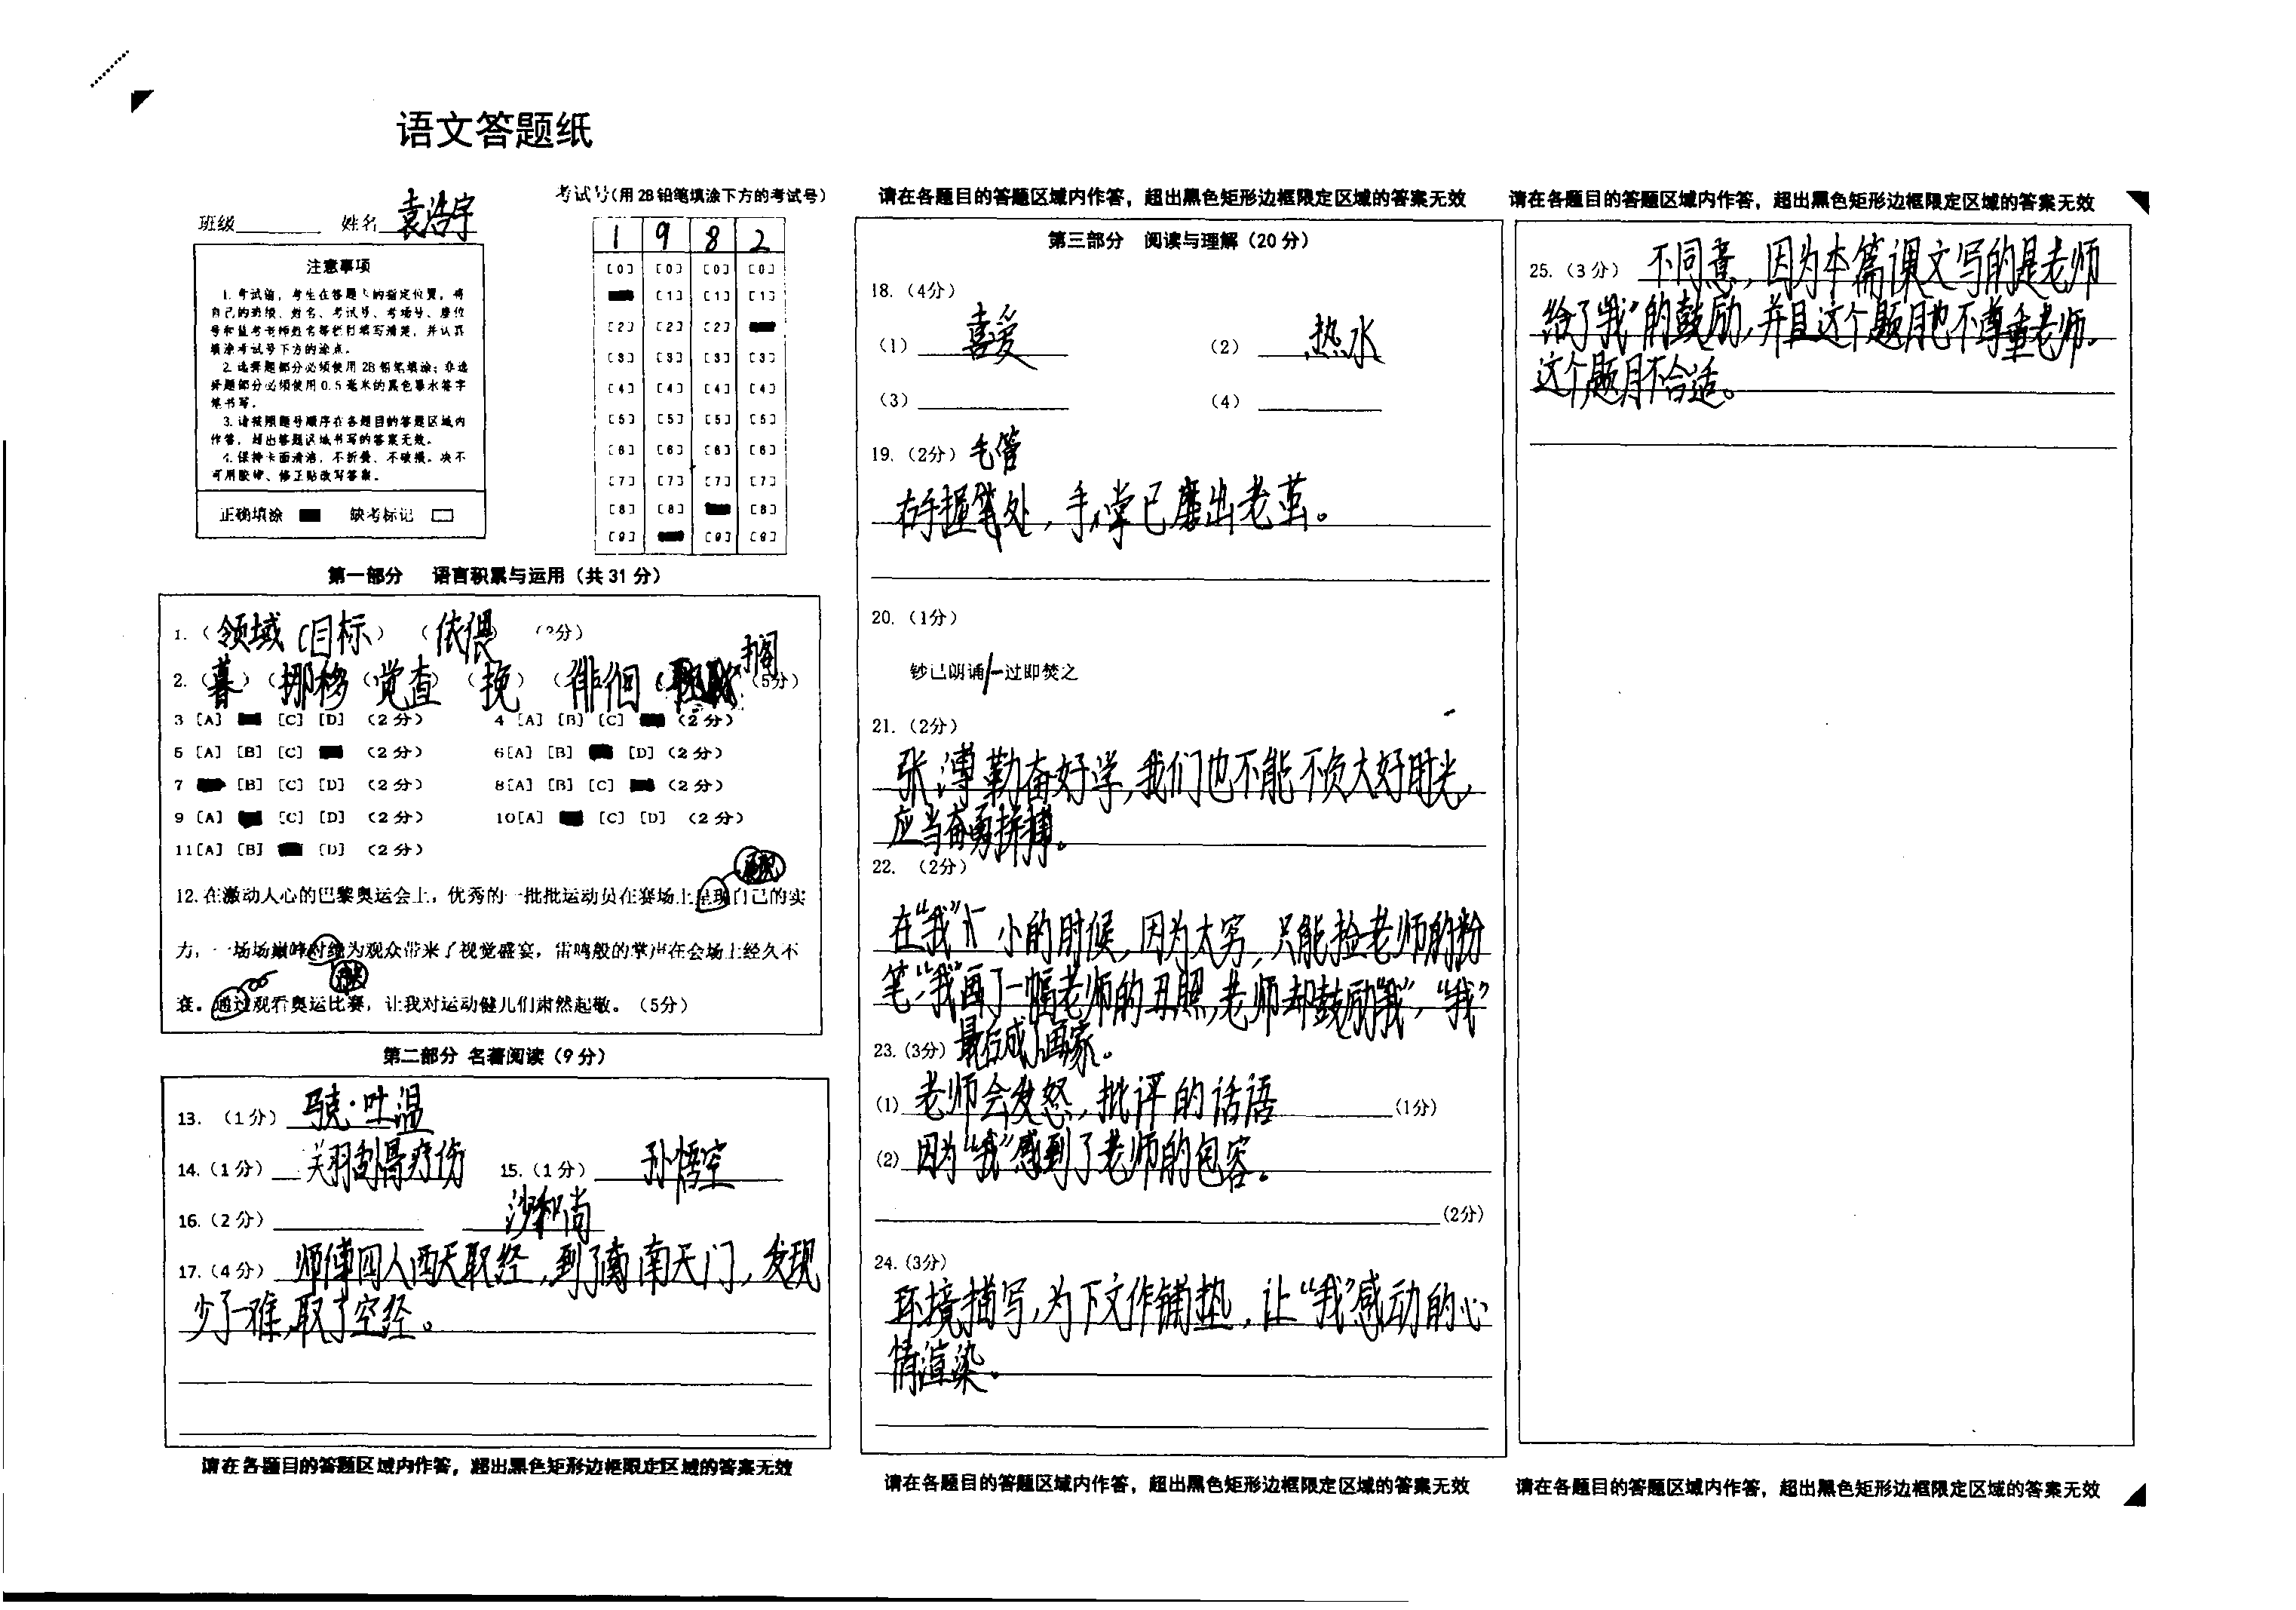 语文答题纸
班级 姓名 袁浩宇
考试号(用2B铅笔填涂下方的考试号)
1 9 8 2
注意事项
1. 考试前,考生在答题卡的指定位置,将
自己的班级、姓名、考试号、考场号、座位
号和监考老师姓名等栏目填写清楚,并认真
填涂考试号下方的涂点。
2. 选择题部分必须使用2B铅笔填涂;非选
择题部分必须使用0.5毫米的黑色墨水签字
笔书写。
3. 请按照题号顺序在各题目的答题区域内
作答,超出答题区域书写的答案无效。
4. 保持卡面清洁,不折叠、不破损。决不
可用胶带、修正贴改写答案。
正确填涂 缺考标记
[0] [0] [0] [0]
[1] [1] [1]
[2] [2] [2]
[3] [3] [3] [3]
[4] [4] [4] [4]
[5] [5] [5] [5]
[6] [6] [6] [6]
[7] [7] [7] [7]
[8] [8] [8]
[9] [9] [9]
第一部分 语言积累与运用(共31分)
1.(领域(目标)(依偎)(3分)
2.(暮)(挪移(觉查)(挽)(徘徊( 搁(5分)
3 [A] [C] [D] (2分) 4 [A] [B] [C] (2分)
5 [A] [B] [C] (2分) 6[A] [B] [D] (2分)
7 [B] [C] [D] (2分) 8[A] [B] [C] (2分)
9 [A] [C] [D] (2分) 10[A] [C] [D] (2分)
11[A] [B] [D] (2分)
12. 在激动人心的巴黎奥运会上,优秀的一批批运动员在赛场上呈现自己的实
力,一场场巅峰对绝为观众带来了视觉盛宴,雷鸣般的掌声在会场上经久不
衰。通过观看奥运比赛,让我对运动健儿们肃然起敬。(5分)
第二部分 名著阅读(9分)
13. (1分) 马克·吐温
14.(1分) 关羽刮骨疗伤 15.(1分) 孙悟空
16.(2分) 沙和尚
17.(4分) 师傅四人西天取经,到了南天门,发现
少了一难,取了空经。
请在各题目的答题区域内作答,超出黑色矩形边框限定区域的答案无效
请在各题目的答题区域内作答,超出黑色矩形边框限定区域的答案无效
第三部分 阅读与理解(20分)
18.(4分)
(1) 喜爱 (2) 热水
(3) (4)
19.(2分) 毛管
右手握笔处,手掌已磨出老茧。
20.(1分)
钞已朗诵/一过即焚之
21.(2分)
张溥勤奋好学,我们也不能不负大好时光,
应当奋勇拼搏。
22. (2分)
在“我”小的时候,因为太穷,只能捡老师的粉
笔,“我”画了一幅老师的丑照,老师却鼓励“我”,“我”
最后成了画家。
23.(3分)
(1) 老师会发怒,批评的话语 (1分)
(2) 因为“我”感到了老师的包容。
(2分)
24.(3分)
环境描写,为下文作铺垫,让“我”感动的心
情渲染。
请在各题目的答题区域内作答,超出黑色矩形边框限定区域的答案无效
请在各题目的答题区域内作答,超出黑色矩形边框限定区域的答案无效
25.(3分) 不同意,因为本篇课文写的是老师
给了“我”的鼓励,并且这个题目也不尊重老师。
这个题目不合适。
请在各题目的答题区域内作答,超出黑色矩形边框限定区域的答案无效